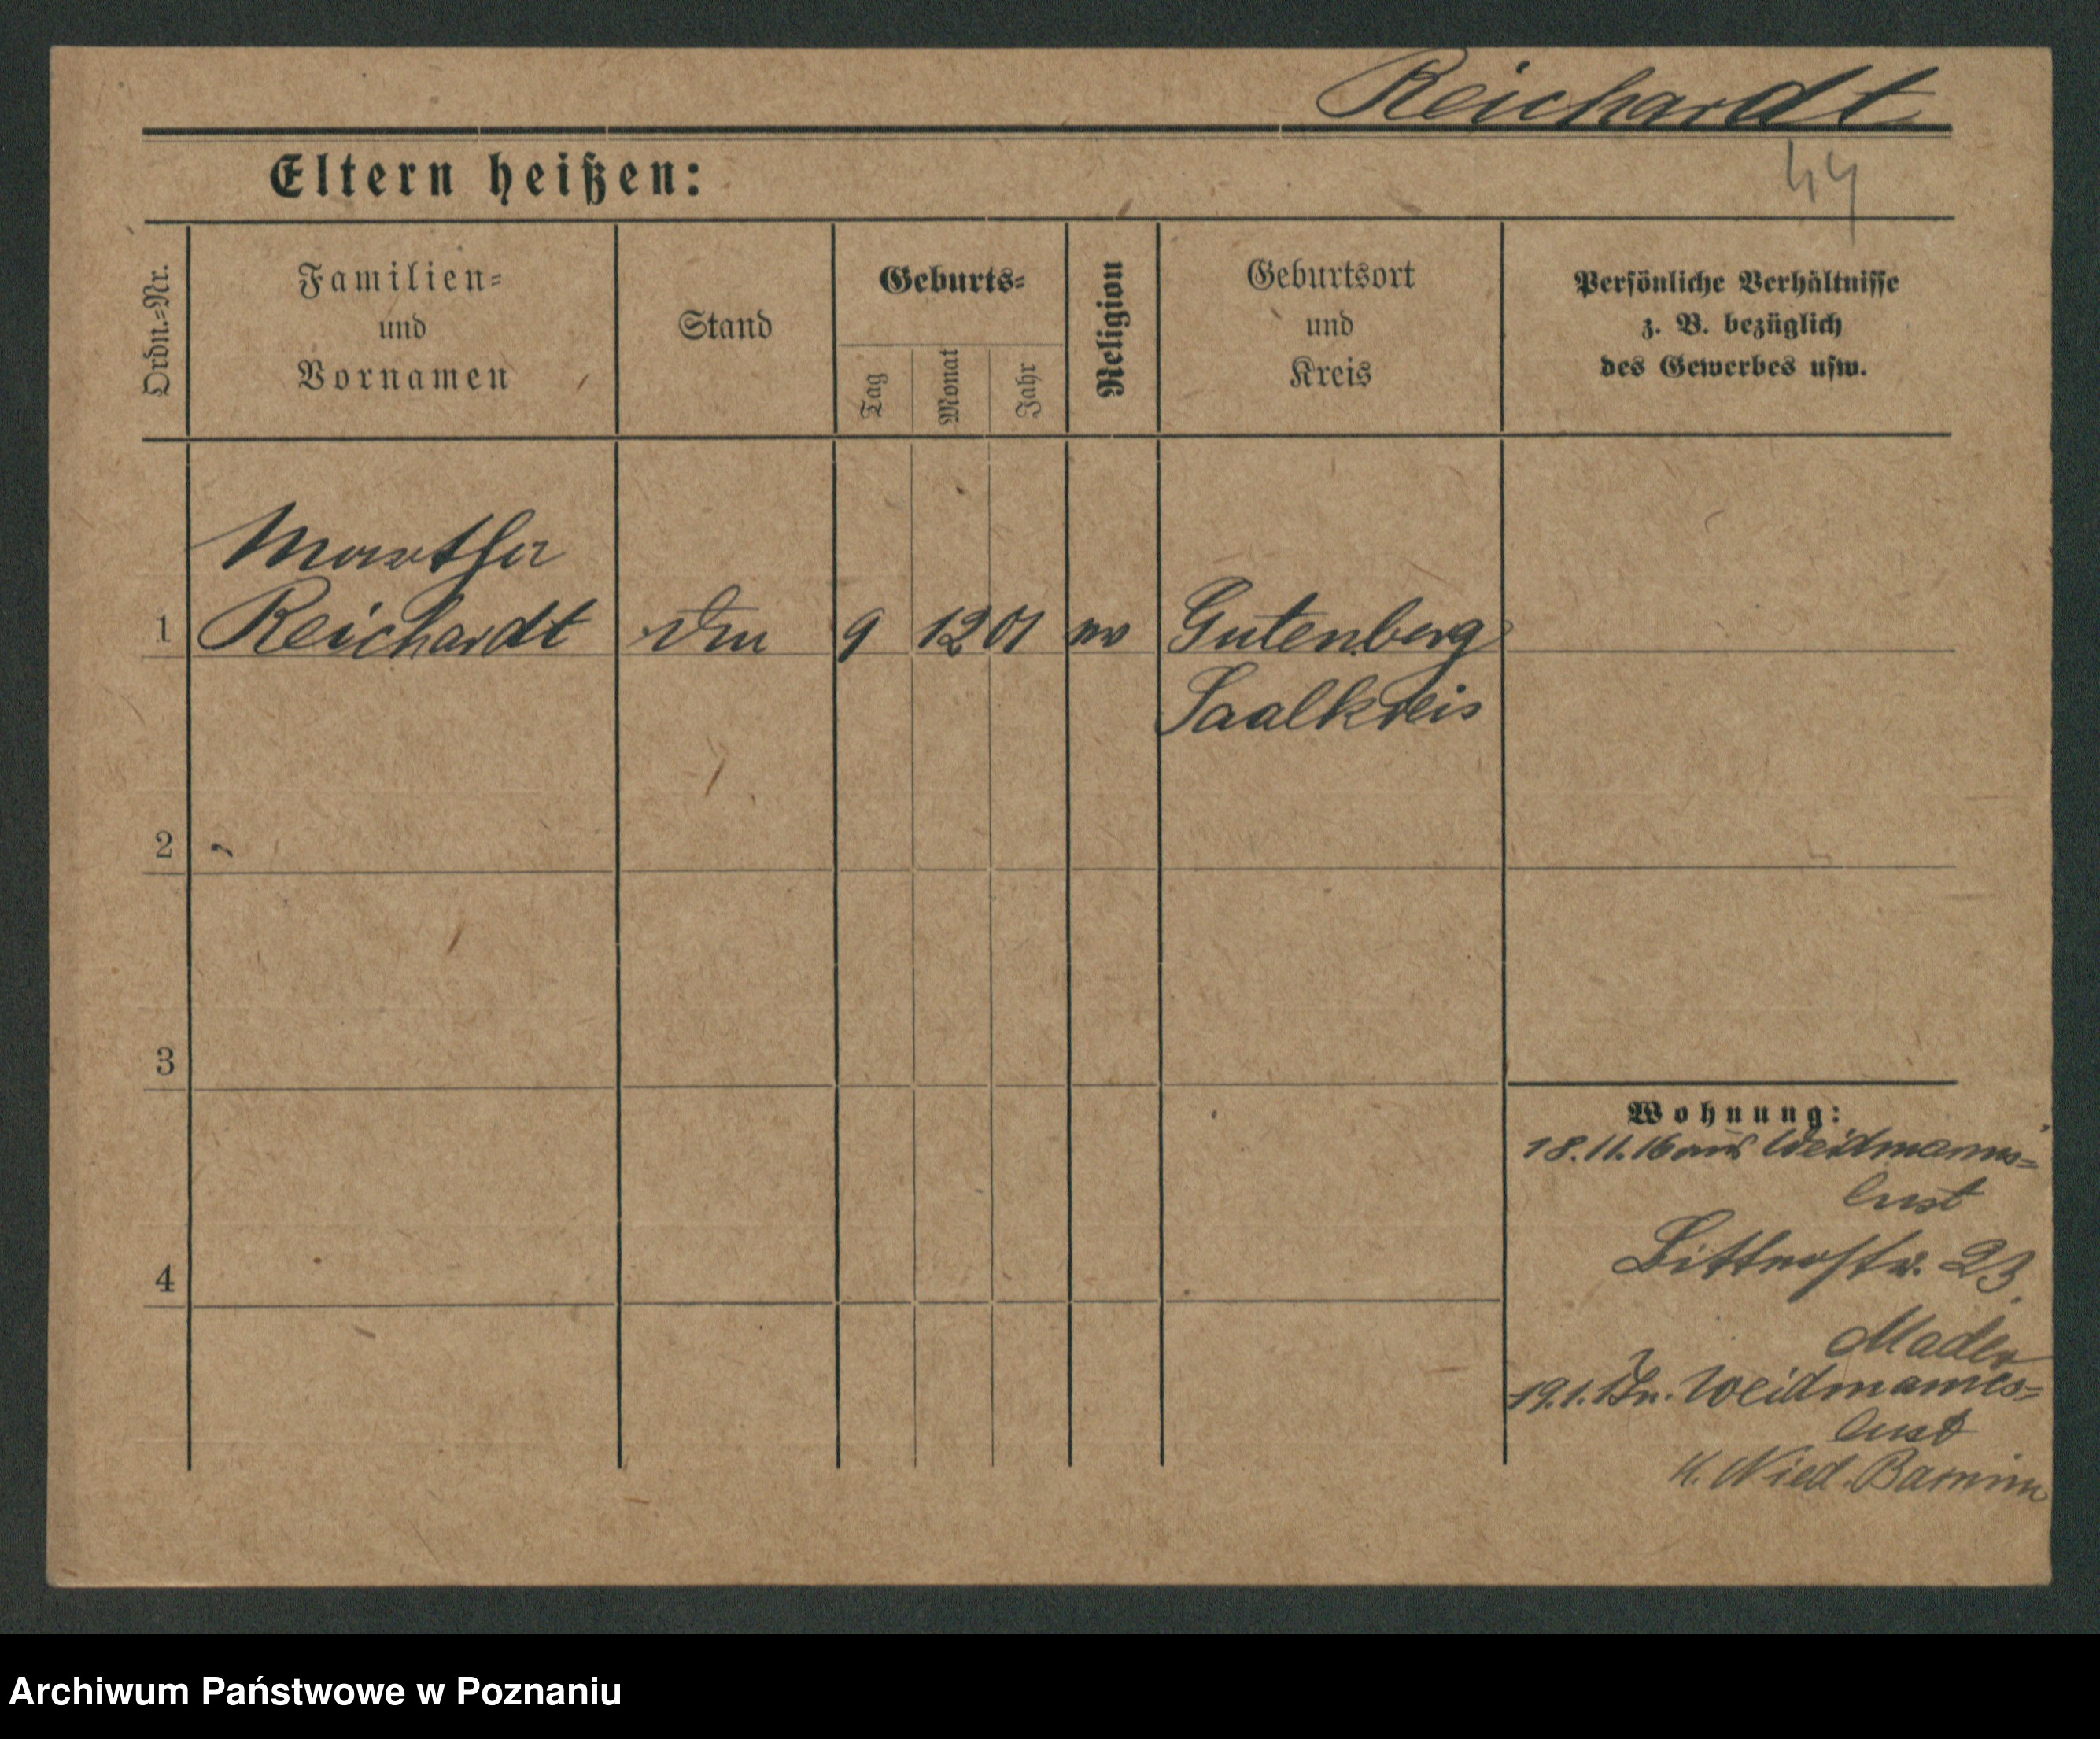 Reichardt
44
Eltern heißen:
Ordn.=Nr.
Familien=
und
Vornamen
Stand
Geburts=
Tag
Monat
Jahr
Religion
Geburtsort
und
Kreis
Persönliche Verhältnisse
z. B. bezüglich
des Gewerbes usw.
Martha
1 Reichardt 9 12 01 ev Gutenberg
Saalkreis
2
3
4
Wohnung:
18.11.16 aus Weidmanns=
lust
Bitterstr. 23
Mader
19.1.17 n. Weidmannes=
lust
K. Nied. Barnim
Archiwum Państwowe w Poznaniu